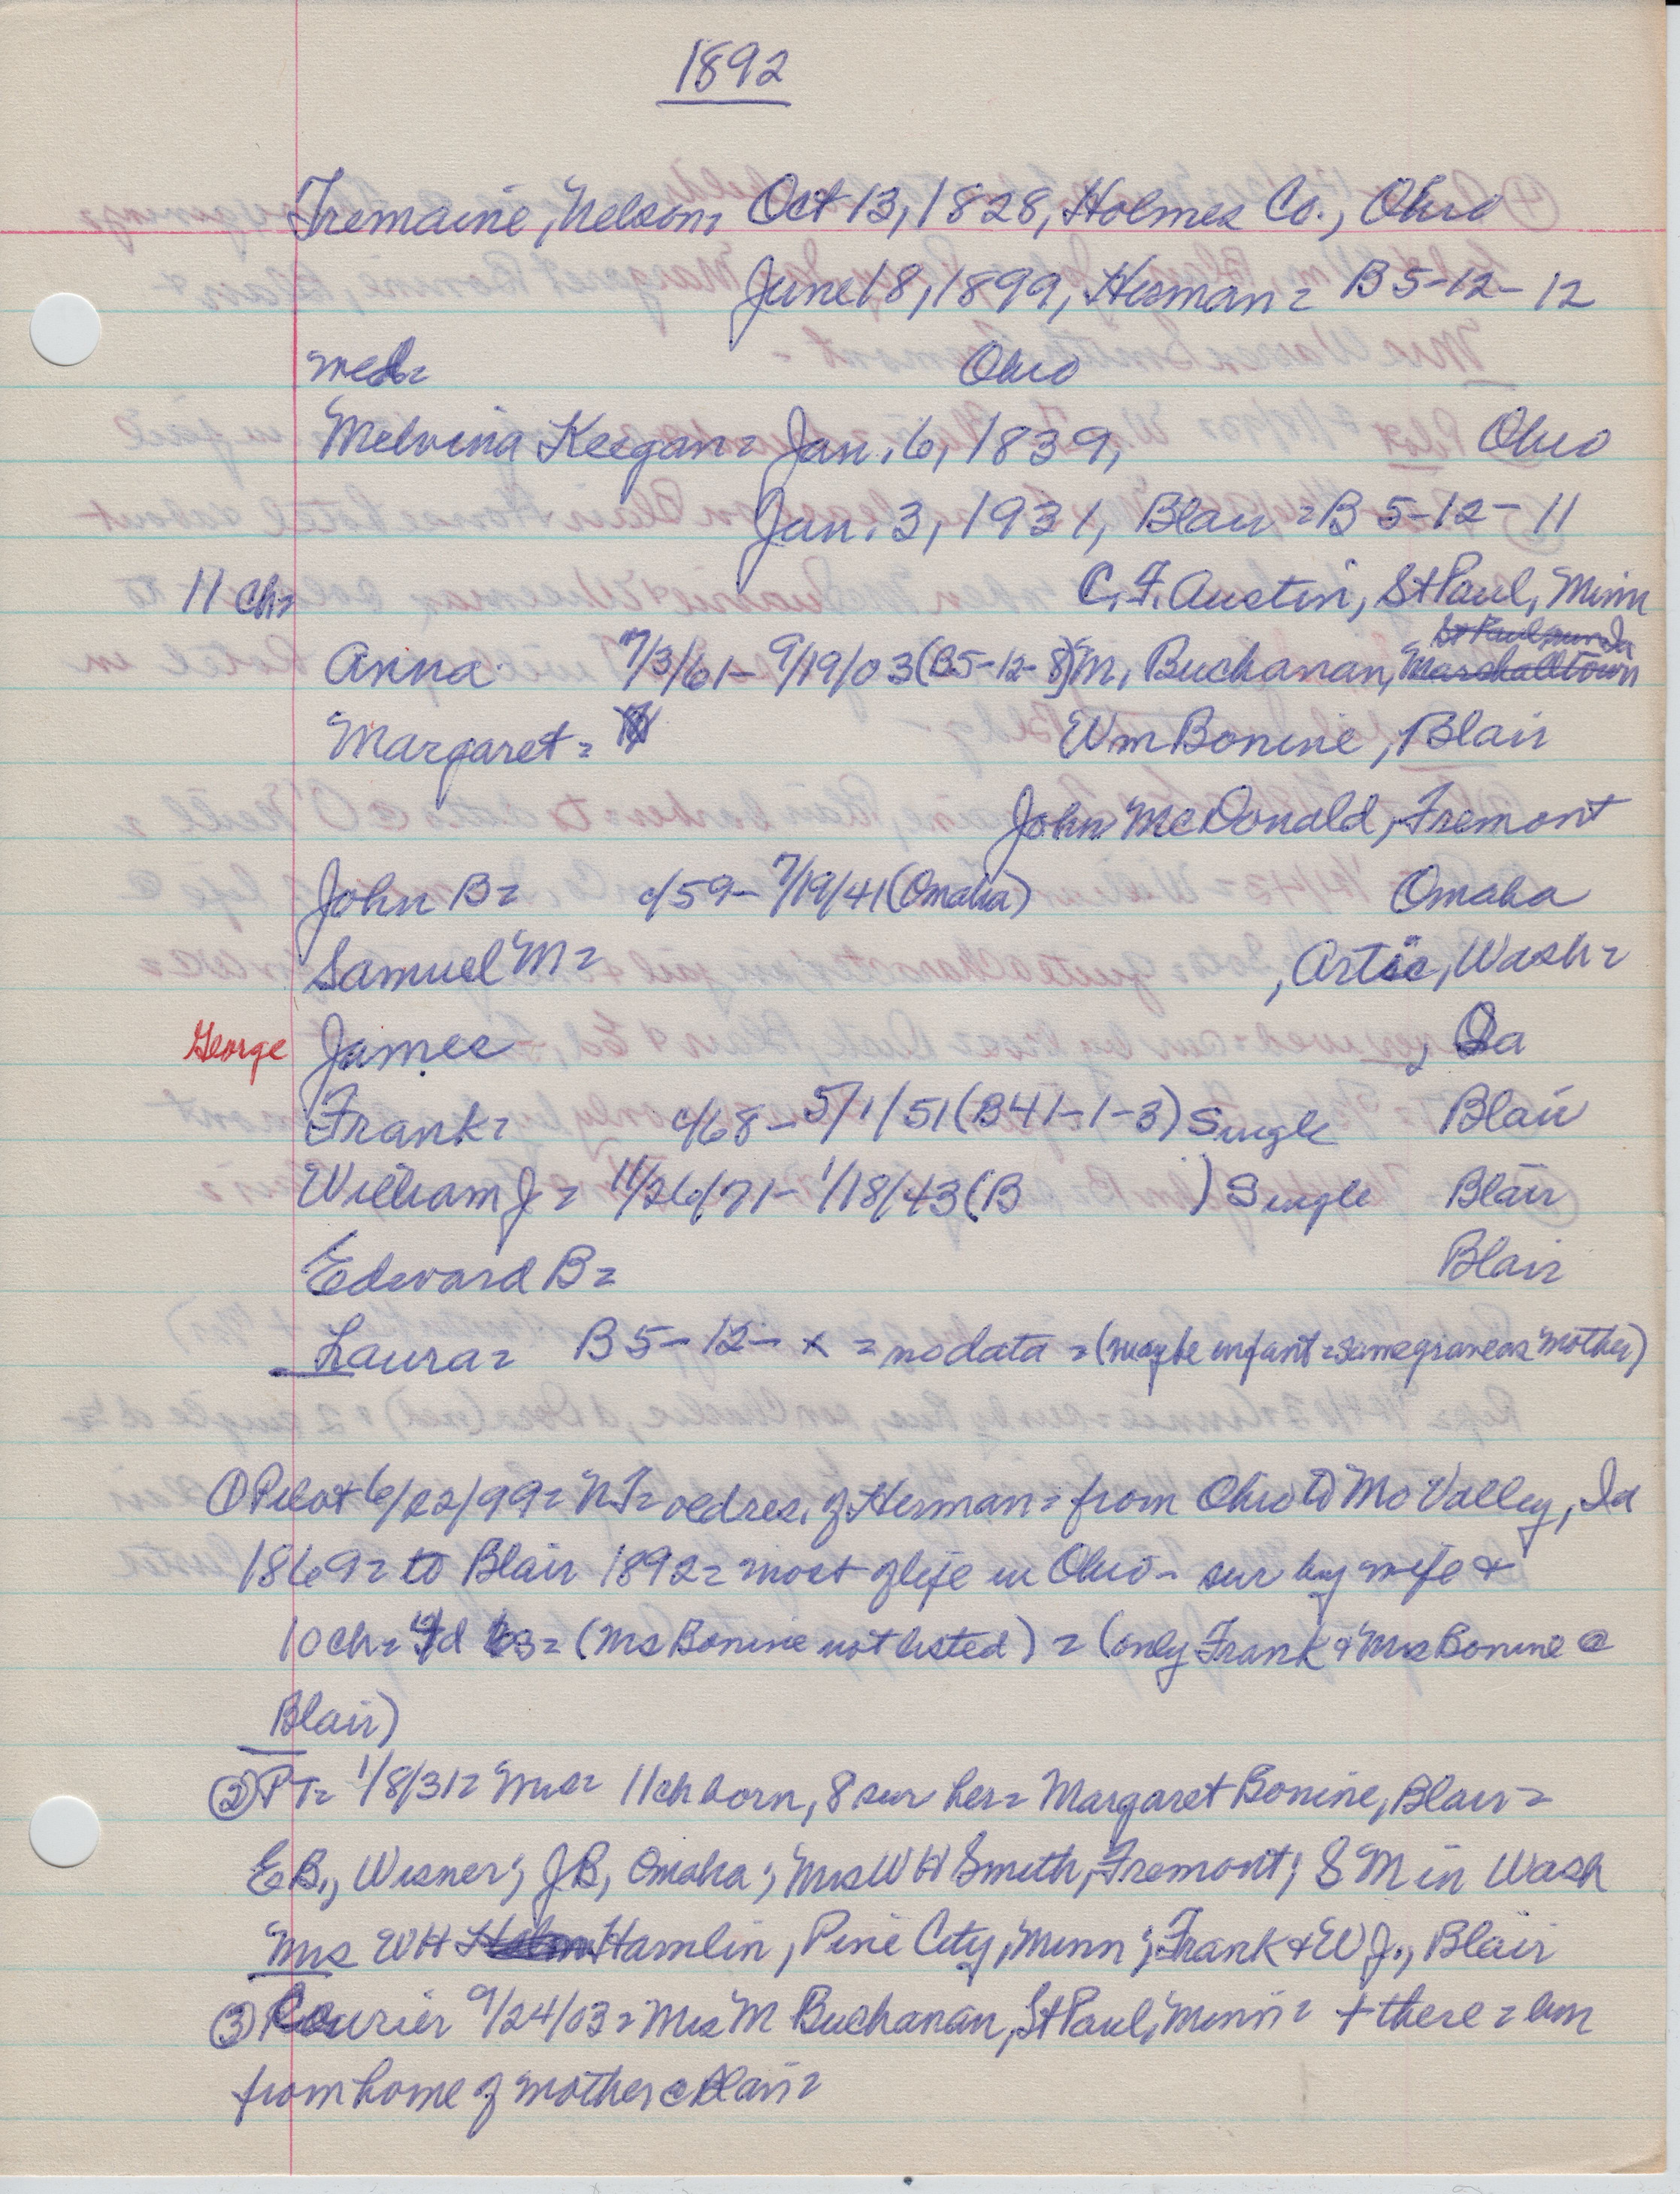 1892
Tremaine, Nelson= Oct 13, 1828, Holmes Co., Ohio
June 18, 1899, Herman = B 5-12-12
med= Ohio
Melvina Keegan = Jan. 6, 1839, Ohio
Jan. 3, 1931, Blair = B 5-12-11
11 ch= C. F. Austin, St Paul, Minn
Anna 7/3/61 - 9/19/03 (B5-12-8) M. Buchanan, Marshalltown
Margaret = Wm Bonine, Blair
John McDonald, Fremont
John B= c/59 - 7/19/41 (Omaha) Omaha
Samuel M= , Artic, Wash=
George James , Ia
Frank= c/68 - 5/1/51 (B41-1-3) Single Blair
William J = 11/26/71 - 1/18/43 (B ) Single Blair
Edward B= Blair
Laura= B 5-12-x = no data = (maybe infant = same grave as mother)
① Pilot 6/22/99= NT= old res. of Herman = from Ohio to Mo Valley, Ia
1869= to Blair 1892= most of life in Ohio - sur by wife &
10 ch= (Ms Bonine not listed) = (only Frank & Mrs Bonine @
Blair)
② PT= 1/8/31= Mrs= 11 ch born, 8 sur her= Margaret Bonine, Blair=
E B., Wisner; J B, Omaha; Mrs W H Smith, Fremont; S M in Wash
Mrs W H Hamlin, Pine City, Minn; Frank & W J., Blair
③ Courier 9/24/03= Mrs M Buchanan, St Paul, Minn = + there =
from home of mother @ Blair=